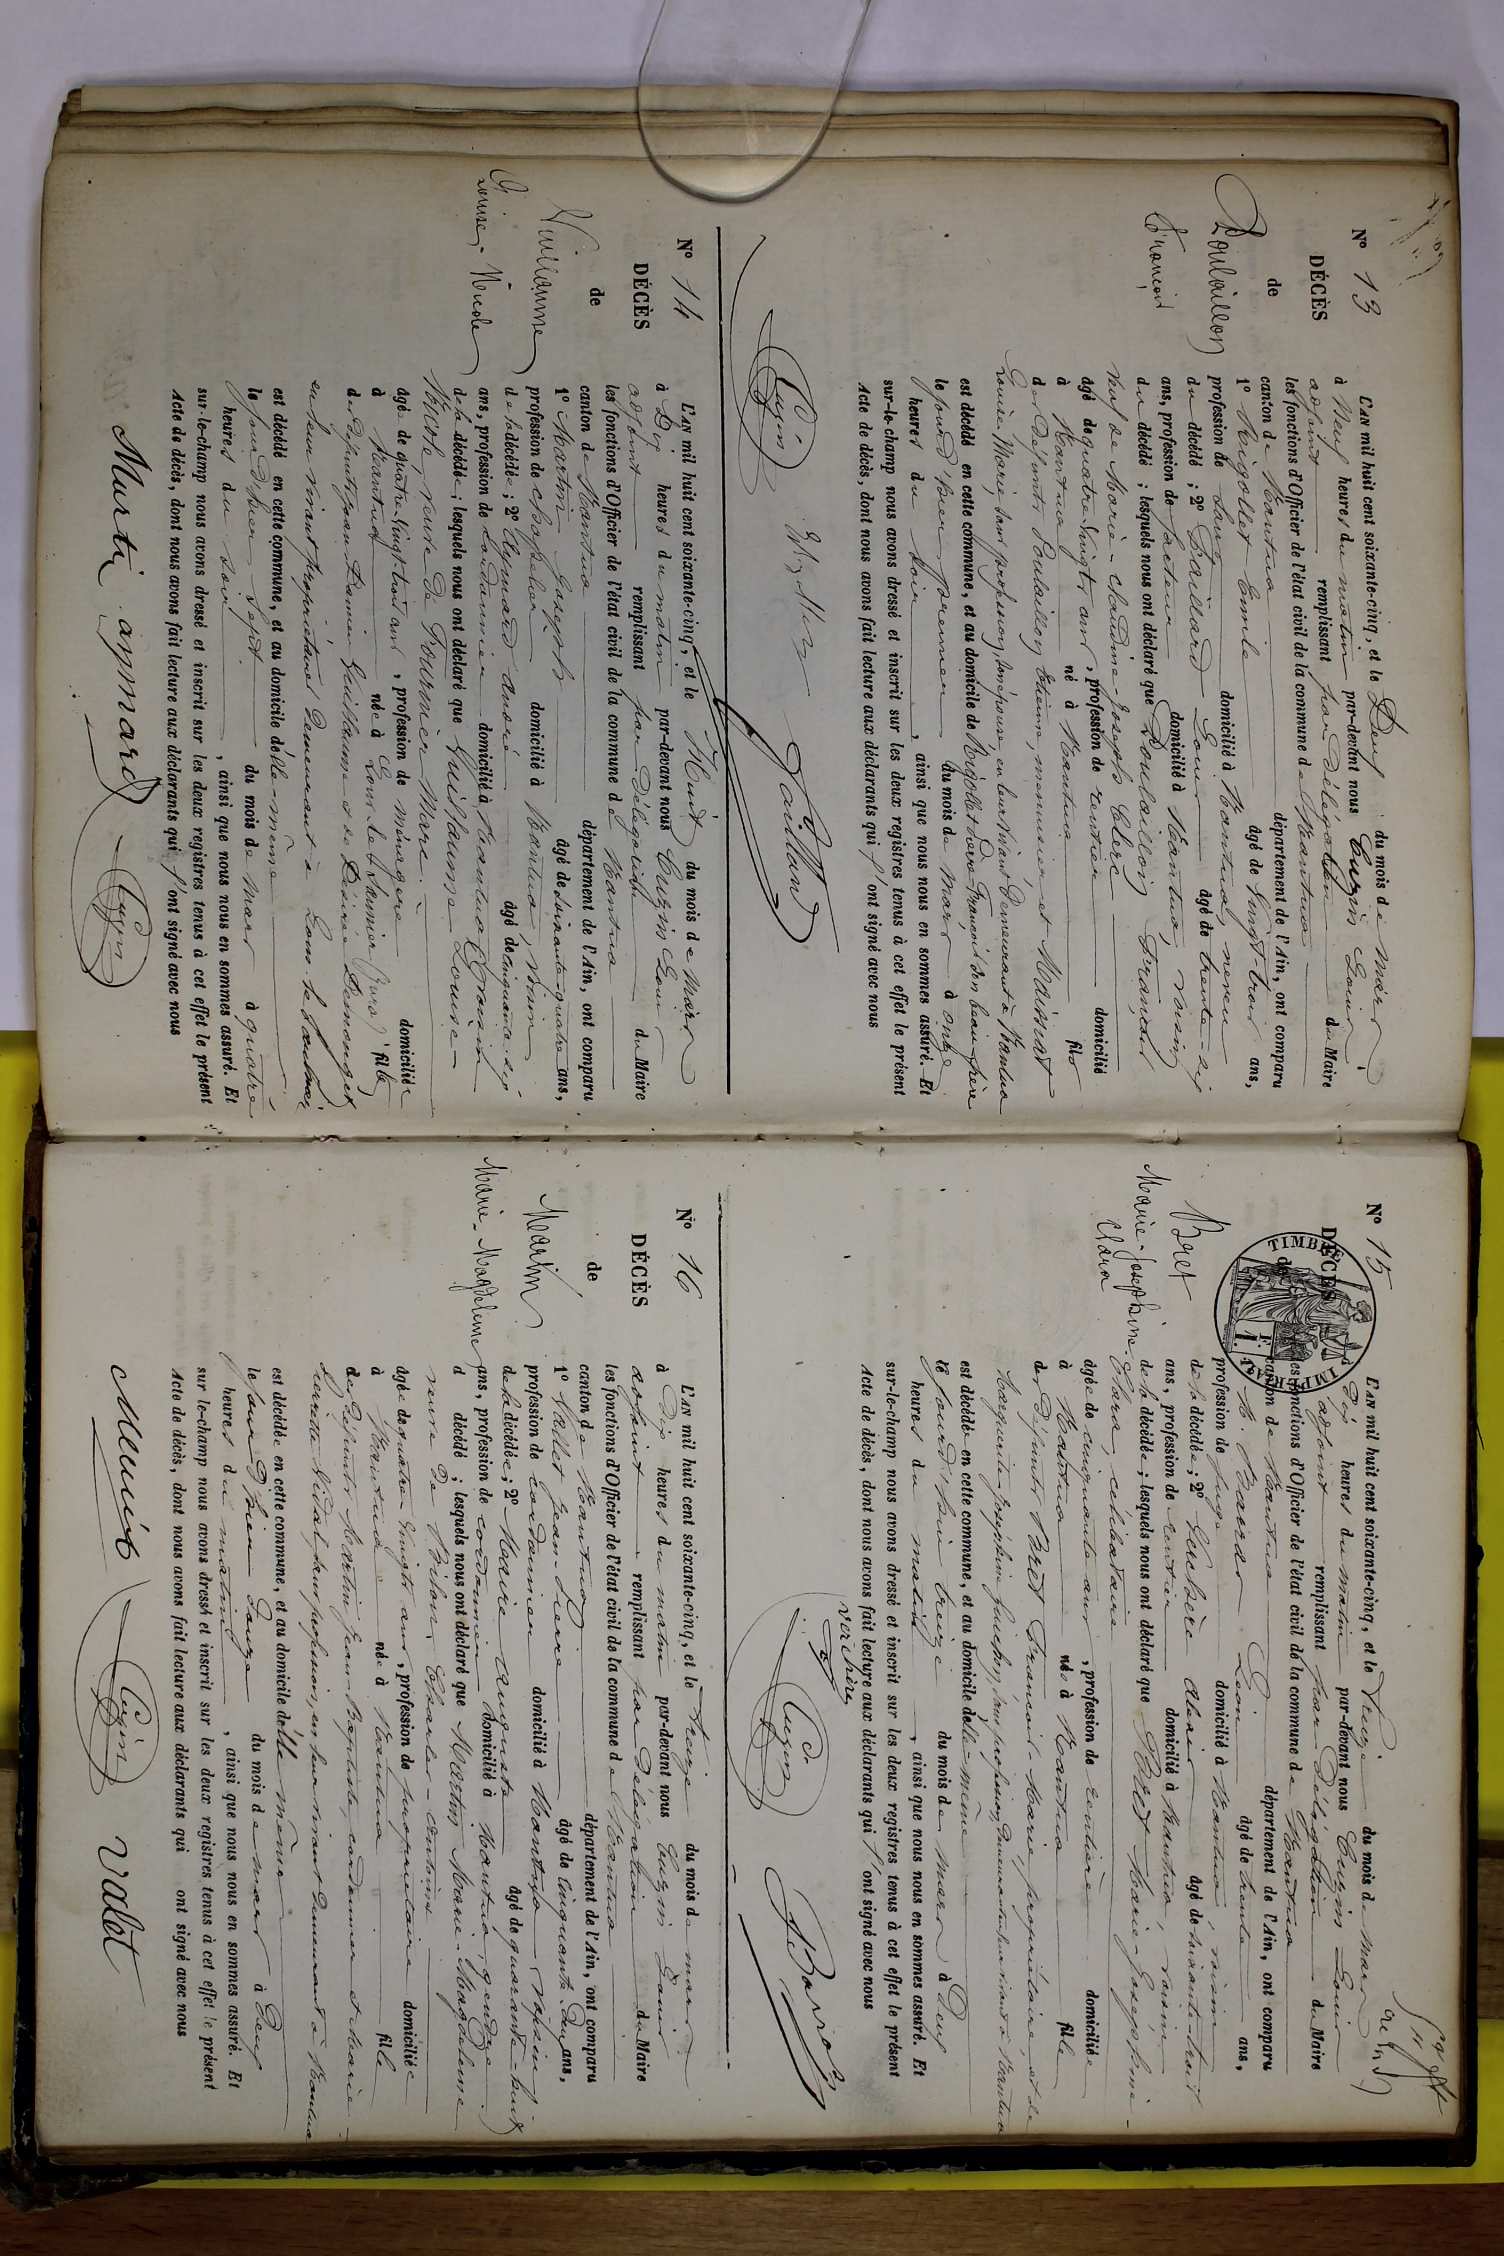 N° 13
DÉCÈS
de
Poulaillon
François
L'AN mil huit cent soixante-cinq, et le Deux du mois de Mars
à Neuf heures du matin par-devant nous Cuzin Louis
adjoint remplissant par délégation du Maire
les fonctions d'Officier de l'état civil de la commune de Nantua
canton de Nantua département de l'Ain, ont comparu
1° Rigollet Emile âgé de vingt-trois ans,
profession de domicilié à Nantua, neveu
du décédé; 2° Baillard Louis âgé de trente-six
ans, profession de facteur domicilié à Nantua, voisin
du décédé; lesquels nous ont déclaré que Poulaillon François
veuf de Marie-Claudine-Josephe Clerc
âgé de quatre-vingts ans, profession de rentier domicilié
à Nantua né à Nantua fils
de défunts Poulaillon Etienne, menuisier, et Maissiat
Louise Marie, sans profession, son épouse en leur vivant demeurant à Nantua
est décédé en cette commune, et au domicile de Rigollet François son beau-frère
le jourd'hier premier du mois de Mars à onze
heures du soir, ainsi que nous nous en sommes assuré. Et
sur-le-champ nous avons dressé et inscrit sur les deux registres tenus à cet effet le présent
Acte de décès, dont nous avons fait lecture aux déclarants qui l'ont signé avec nous
Cuzin Baillard
N° 14
DÉCÈS
de
Guillaume
Louise-Nicole
L'AN mil huit cent soixante-cinq, et le Huit du mois de Mars
à Dix heures du matin par-devant nous Cuzin Louis
adjoint remplissant par délégation du Maire
les fonctions d'Officier de l'état civil de la commune de Nantua
canton de Nantua département de l'Ain, ont comparu
1° Martin Joseph âgé de soixante-quatre ans,
profession de chapelier domicilié à Nantua, voisin
de la décédée; 2° Aymard André âgé de cinquante-six
ans, profession de cordonnier domicilié à Nantua, voisin
de la décédée; lesquels nous ont déclaré que Guillaume Louise-
Nicole, veuve de Fournier Marc
âgée de quatre-vingt trois ans, profession de ménagère domiciliée
à Nantua née à Lons-le-Saunier (Jura) fille
de défunts Jean Damien Guillaume et de Désirée Demouget
en leur vivant propriétaires demeurant à Lons-le-Saunier
est décédée en cette commune, et au domicile d'elle-même
le jourd'hier sept du mois de Mars à quatre
heures du soir, ainsi que nous nous en sommes assuré. Et
sur-le-champ nous avons dressé et inscrit sur les deux registres tenus à cet effet le présent
Acte de décès, dont nous avons fait lecture aux déclarants qui l'ont signé avec nous
Marti aymard Cuzin
N° 15
DÉCÈS
de
TIMBRE IMPERIAL
1 F
Bret
Marie-Josephine
Clara
L'AN mil huit cent soixante-cinq, et le Treize du mois de Mars
à Dix heures du matin par-devant nous Cuzin Louis
adjoint remplissant par délégation du Maire
les fonctions d'Officier de l'état civil de la commune de Nantua
canton de Nantua département de l'Ain, ont comparu
1° M. Barras Léon âgé de trente ans,
profession de Juge domicilié à Nantua, voisin
de la décédée; 2° Verchère Aimé âgé de soixante-huit
ans, profession de rentier domicilié à Nantua, voisin
de la décédée; lesquels nous ont déclaré que Bret Marie-Josephine-
Clara, célibataire
âgée de cinquante ans, profession de rentière domiciliée
à Nantua née à Nantua fille
de défunts Bret François-Marie, propriétaire, et de
Marguerite Joséphine sans profession, demeurant en leur vivant à Nantua
est décédée en cette commune, et au domicile d'elle-même
le jourd'hui treize du mois de Mars à Deux
heures du matin, ainsi que nous nous en sommes assuré. Et
sur-le-champ nous avons dressé et inscrit sur les deux registres tenus à cet effet le présent
Acte de décès, dont nous avons fait lecture aux déclarants qui l'ont signé avec nous
verchère Cuzin Barras
N° 16
DÉCÈS
de
Martin
Marie-Magdeleine
L'AN mil huit cent soixante-cinq, et le treize du mois de mars
à Dix heures du matin par-devant nous Cuzin Louis
adjoint remplissant par délégation du Maire
les fonctions d'Officier de l'état civil de la commune de Nantua
canton de Nantua département de l'Ain, ont comparu
1° Vallet Jean-Pierre âgé de cinquante-deux ans,
profession de cordonnier domicilié à Nantua, voisin
de la décédée; 2° Meunier Auguste âgé de quarante-huit
ans, profession de cordonnier domicilié à Nantua, gendre
d décédé; lesquels nous ont déclaré que Martin Marie-Magdeleine
veuve de Antoine
âgée de quatre-vingts ans, profession de propriétaire domiciliée
à Nantua née à Nantua fille
de défunts Martin Jean-Baptiste, cordonnier et Marie-
Pierrette Vidal sans profession, en leur vivant demeurant à Nantua
est décédée en cette commune, et au domicile d'elle même
le jour d'hier douze du mois de mars à Deux
heures du matin, ainsi que nous nous en sommes assuré. Et
sur-le-champ nous avons dressé et inscrit sur les deux registres tenus à cet effet le présent
Acte de décès, dont nous avons fait lecture aux déclarants qui ont signé avec nous
Cuzin valet